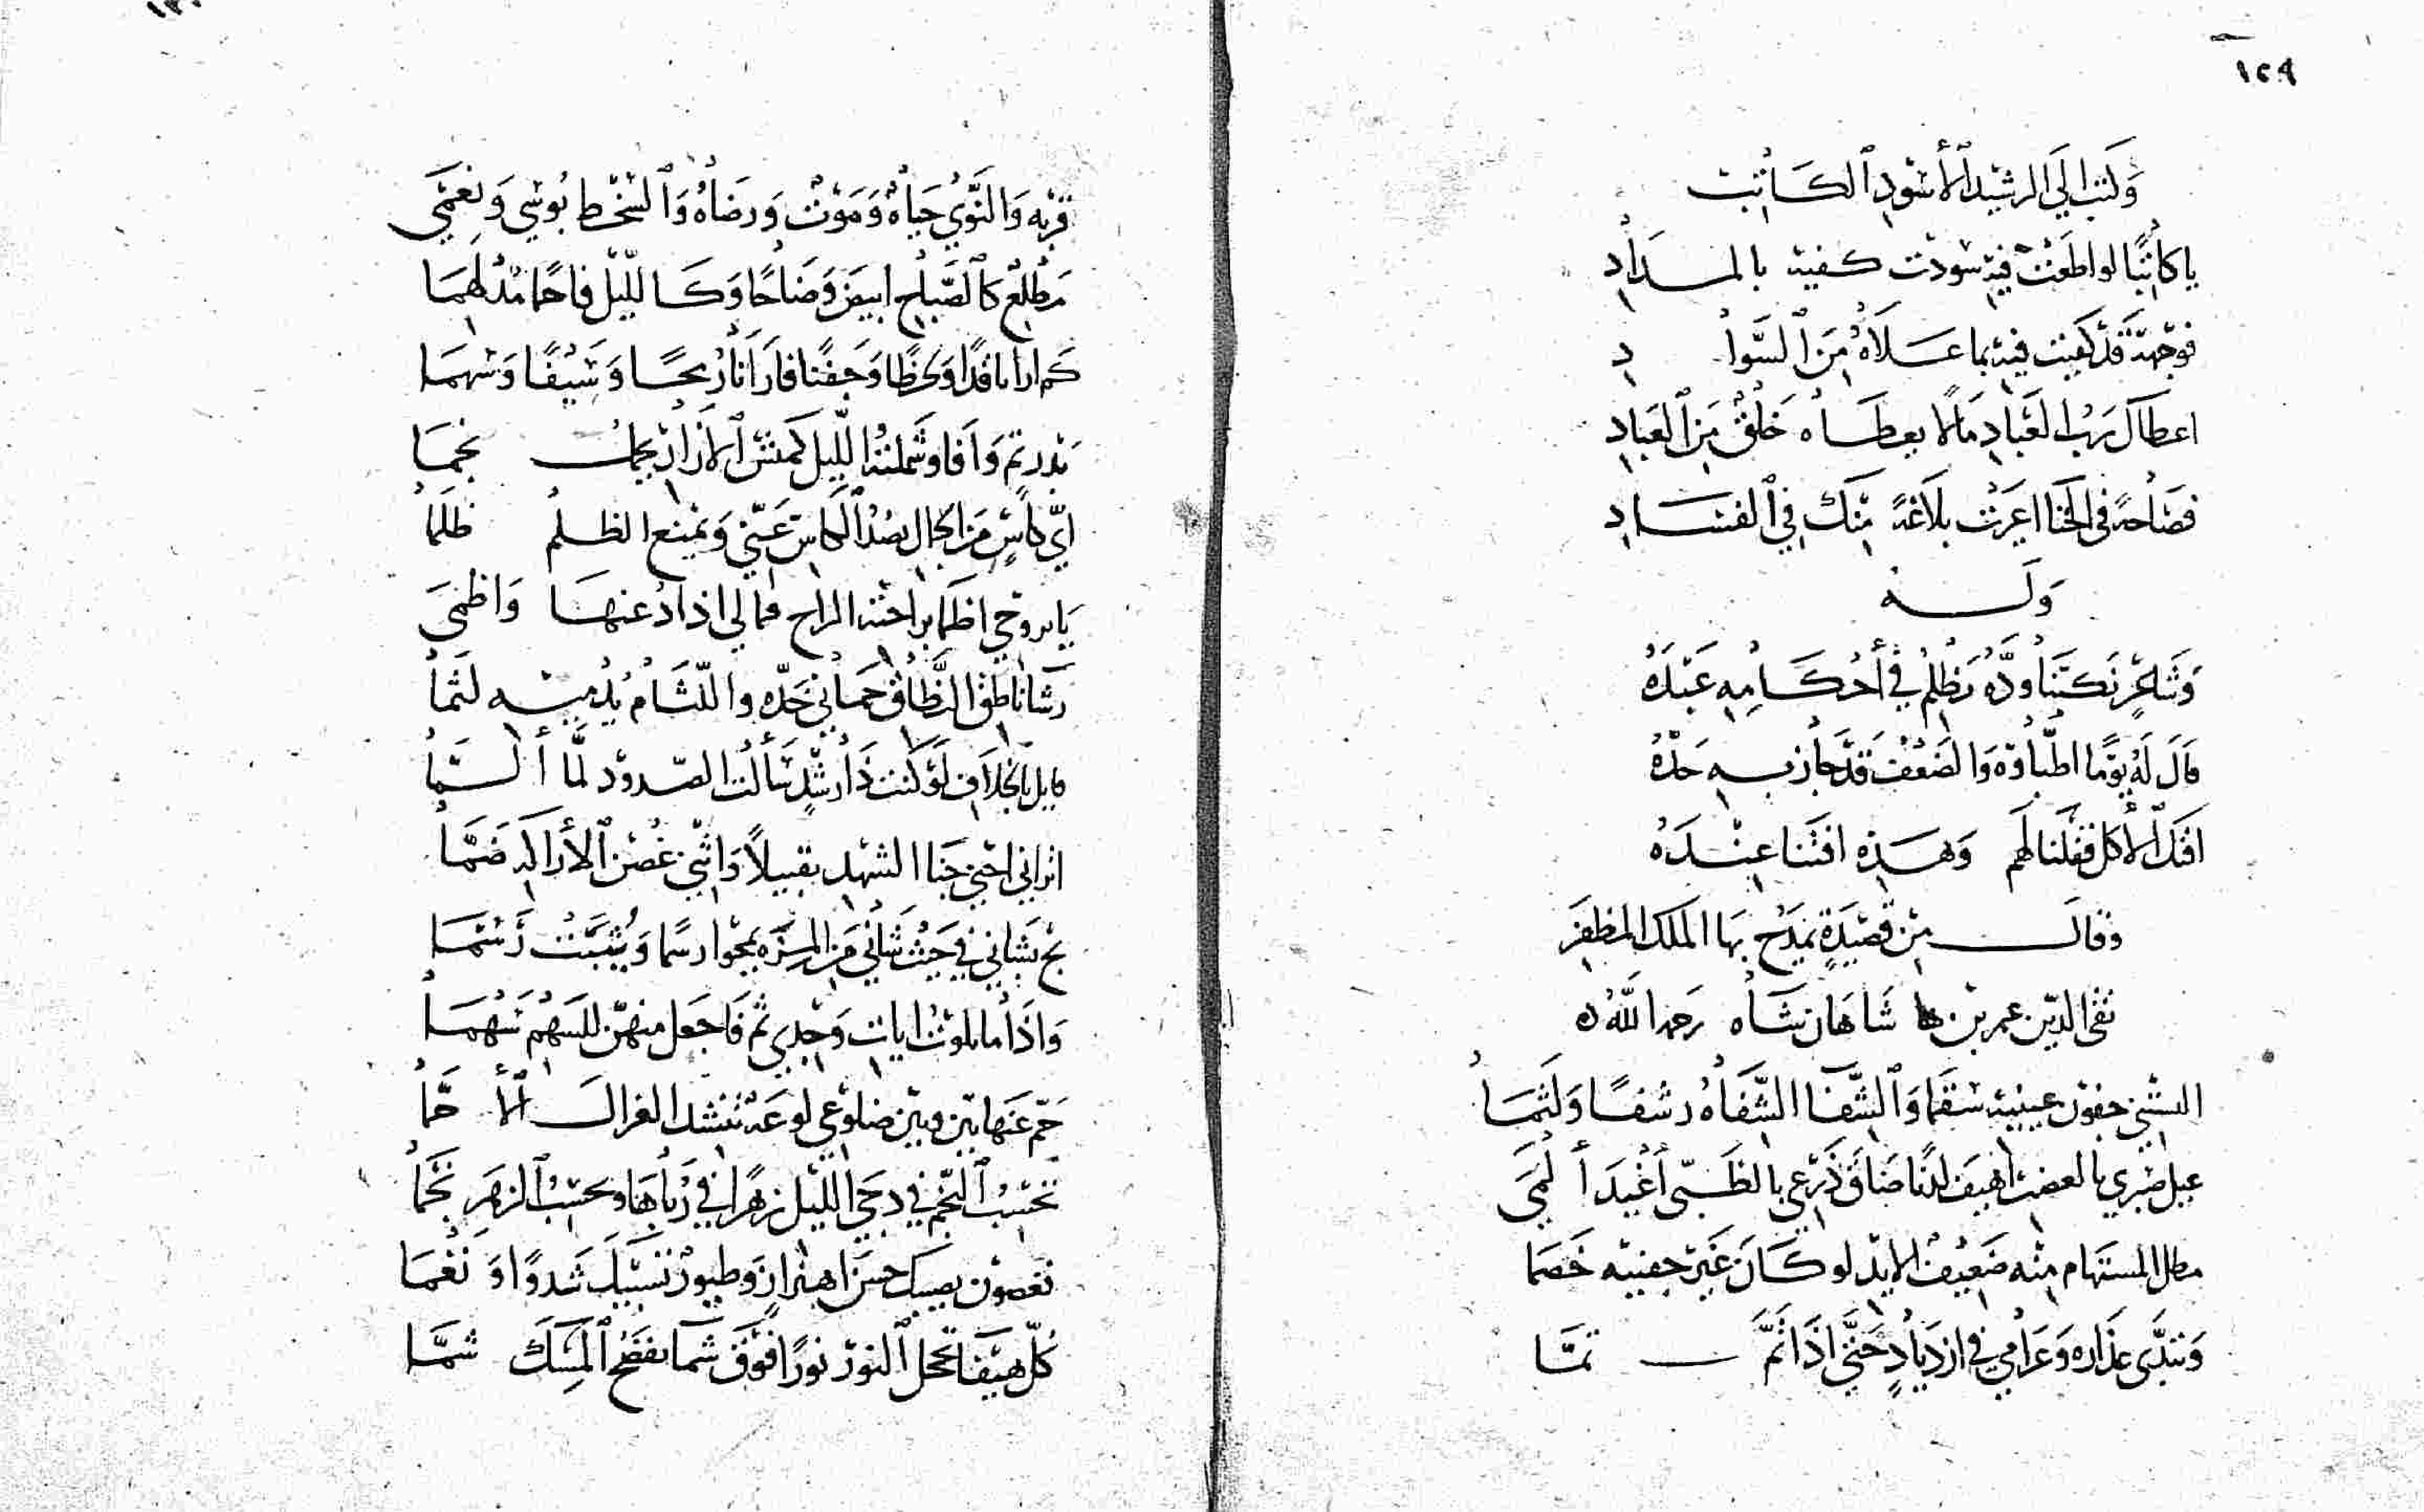 ١٢٩
وكتب الي الرشيد الأسود الكاتب
يا كاتبًا لو اطعت فيه سودت كفيه بالمداد
فوجهه قد كفيت فيه بما علاه من السواد
اعطاك رب العباد مالا يعطاه خلق من العباد
فصاحة في الخنا اعرت بلاغة منك في الفساد
وله
وشاعر نكتب اوده يظلم في أحكامه عبده
قال له يومًا اطباوه والضعف قد جاز به حده
الأكل فقلنا لهم وهذه افتنا عنده
وقال من قصيدة يمدح بها الملك المظفر
تقي الدين عمر بن شاهان شاه رحمه الله
البستني جفون عينيه سقما والشفا الشفاه رشفًا ولثما
عيل صبري بالغصن اهيف لدنا ضاق ذرعي بالظبي أغيد ألمى
مطل المستهام منه ضعيف الايد لو كان غير جفنيه خصما
وتبدى عذاره وغرامي في ازدياد حتى اذا تم تما
قربه والنوي حياة وموت ورضاه والسخط بوسي ونعمي
مطلع كالصباح ابيض وضاحا وكالليل فاحما مدلهما
كم ارانا قدا ولحظا وجفنا فارانا رمحا وسيفا وسهما
بدر تم وافا وشملته الليل كمتن الازار نجما
اي كاس من الجمال يصد الكاس عني ويمنع الظلم ظلما
يا بروحي اظما براحته الراح فمالي اذاد عنها واظمى
رشا ناطق النطاق حماني خده واللثام يدميه لثما
مايل بالخلاف لو كنت ذا رشد سألت الصدود لما ألما
اتراني اجتني جنا الشهد تقبيلا واثني غصن الأراكه ضما
بشاني في حيث شاني من المزه يمحوا رسما ويثبت رسما
واذا ما تلوت ايات وجدي ثم فاجعل منهن للسهم سهما
حم عنها بين وبين ضلوعي لوعة تنشد الغرال ألا حما
تحسب النجم في دجى الليل زهرا في رباها وتحسب الزهر نجما
بغصون يصبيك حسن اهتزاز وطيور تسبيك شدوا ونغما
كل هيفا تحمل النور نورا فوق شما تفضح المسك شما